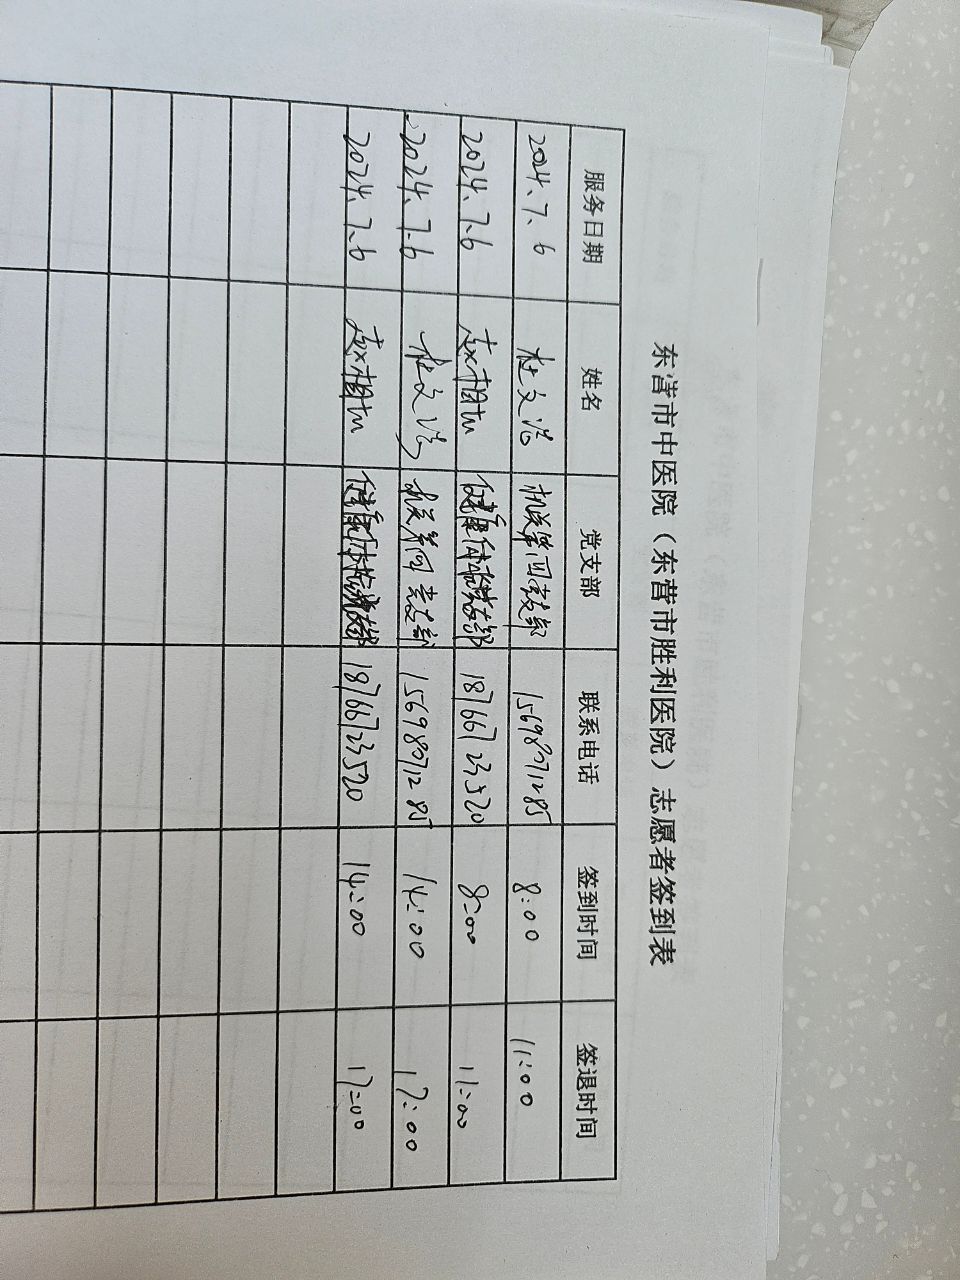 东营市中医院（东营市胜利医院）志愿者签到表
服务日期 姓名 党支部 联系电话 签到时间 签退时间
2024.7.6 杜文浩 机关第四党支部 15698071285 8:00 11:00
2024.7.6 赵相如 健康体检党支部 18766723520 8:00 11:00
2024.7.6 杜文浩 机关第四党支部 15698071285 14:00 17:00
2024.7.6 赵相如 健康体检党支部 18766723520 14:00 17:00